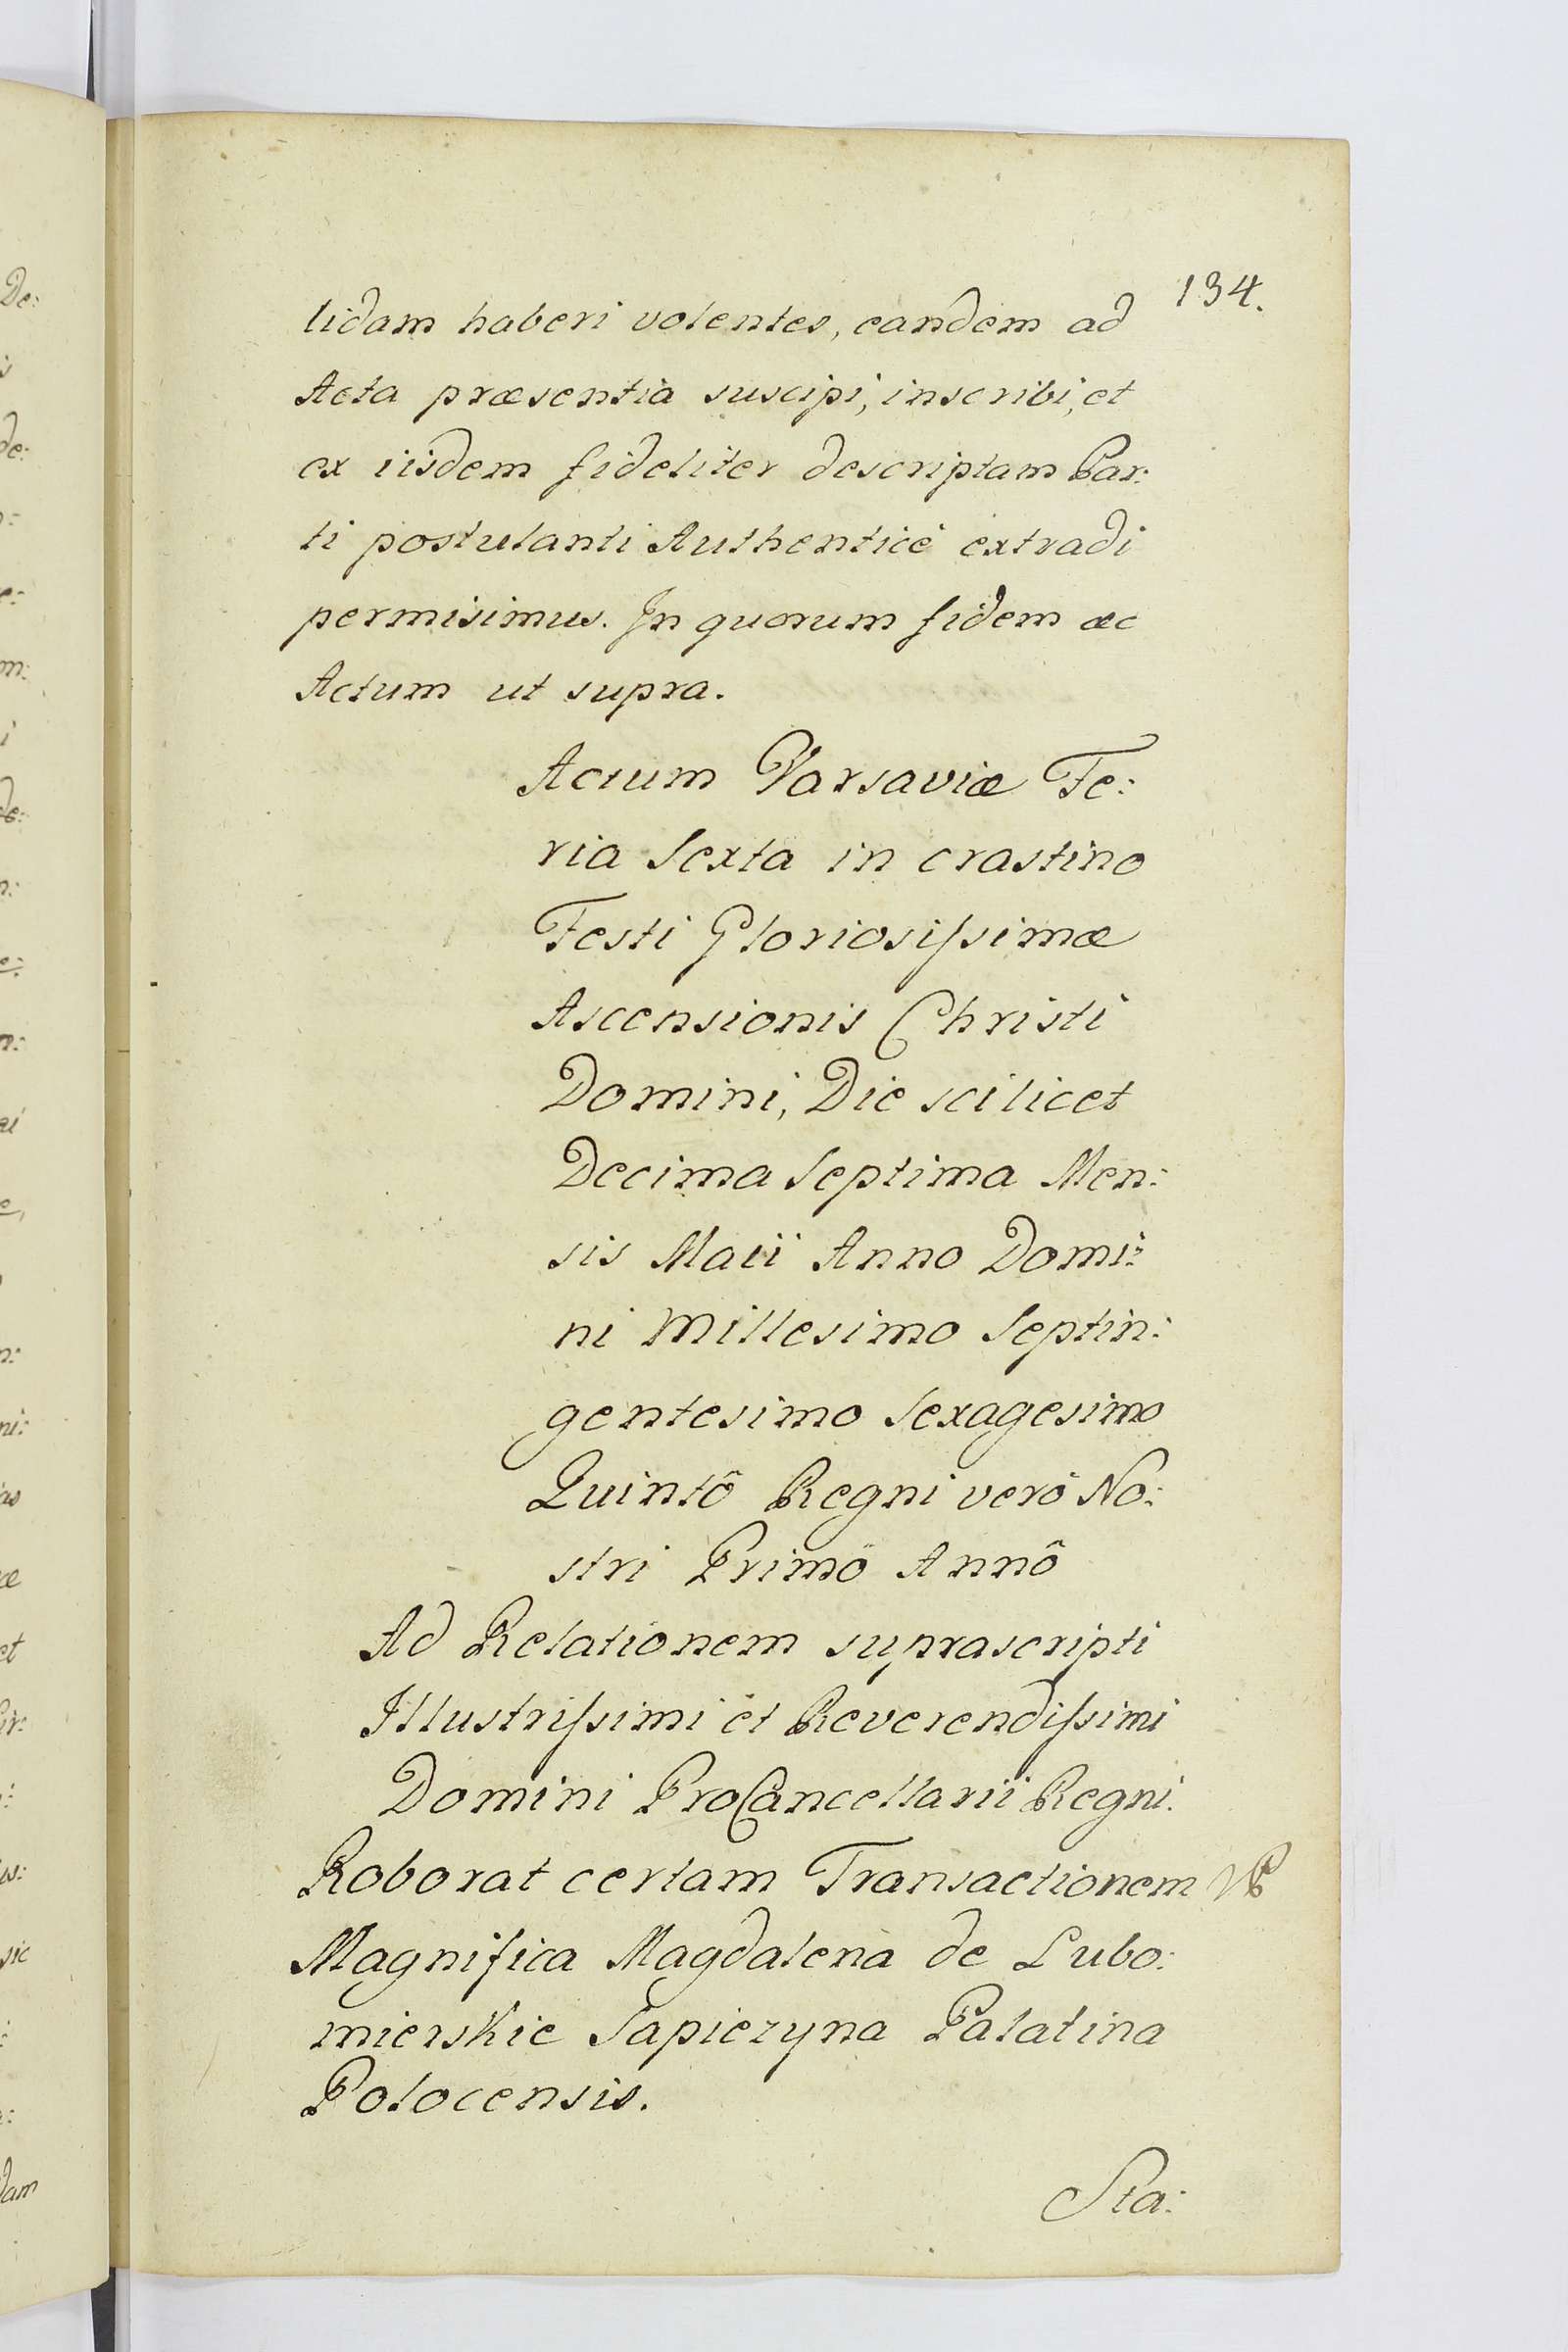 134.
lidam haberi volentes, eandem ad
Acta præsentia suscipi, inscribi, et
ex iisdem fideliter descriptam Par:
ti postulanti Authenticè extradi
permisimus. In quorum fidem ac
Actum ut supra.
Actum Varsaviæ Fe:
ria Sexta in crastino
Festi Gloriosissimæ
Ascensionis Christi
Domini, Die scilicet
Decima Septima Men:
sis Maii Anno Domi:
ni Millesimo Septin:
gentesimo Sexagesimo
Quintô Regni verò No:
stri Primô Annô
Ad Relationem suprascripti
Illustrissimi et Reverendissimi
Domini ProCancellarii Regni.
Roborat certam Transactionem
Magnifica Magdalena de Lubo:
mierskie Sapiezyna Palatina
Polocensis.
Sta: